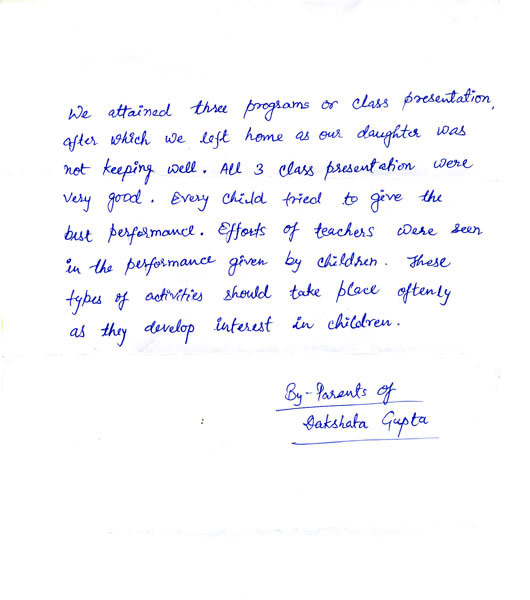 We attained three programs or class presentation,
after which we left home as our daughter was
not keeping well. All 3 class presentation were
very good. Every child tried to give the
best performance. Efforts of teachers were seen
in the performance given by children. These
types of activities should take place oftenly
as they develop interest in children.
By-Parents of
Dakshata Gupta